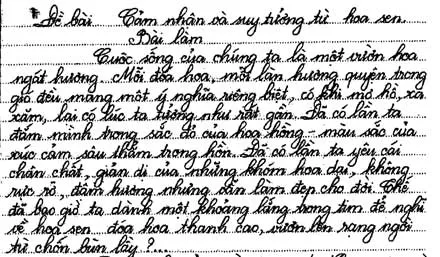 Đề bài Cảm nhận và suy tưởng từ hoa sen.
Bài làm
Cuộc sống của chúng ta là một vườn hoa
ngát hương. Mỗi đóa hoa, mỗi làn hương quyện trong
gió đều mang một ý nghĩa riêng biệt, có khi mơ hồ, xa
xăm, lại có lúc ta tưởng như rất gần. Đã có lần ta
đắm mình trong sắc đỏ của hoa hồng - màu sắc của
xúc cảm sâu thẳm trong hồn. Đã có lần ta yêu cái
chân chất, giản dị của những khóm hoa dại, không
rực rỡ, đậm hương nhưng vẫn làm đẹp cho đời. Thế
đã bao giờ ta dành một khoảng lặng trong tim để nghĩ
về hoa sen đóa hoa thanh cao, vươn lên rạng ngời
từ chốn bùn lầy ?...